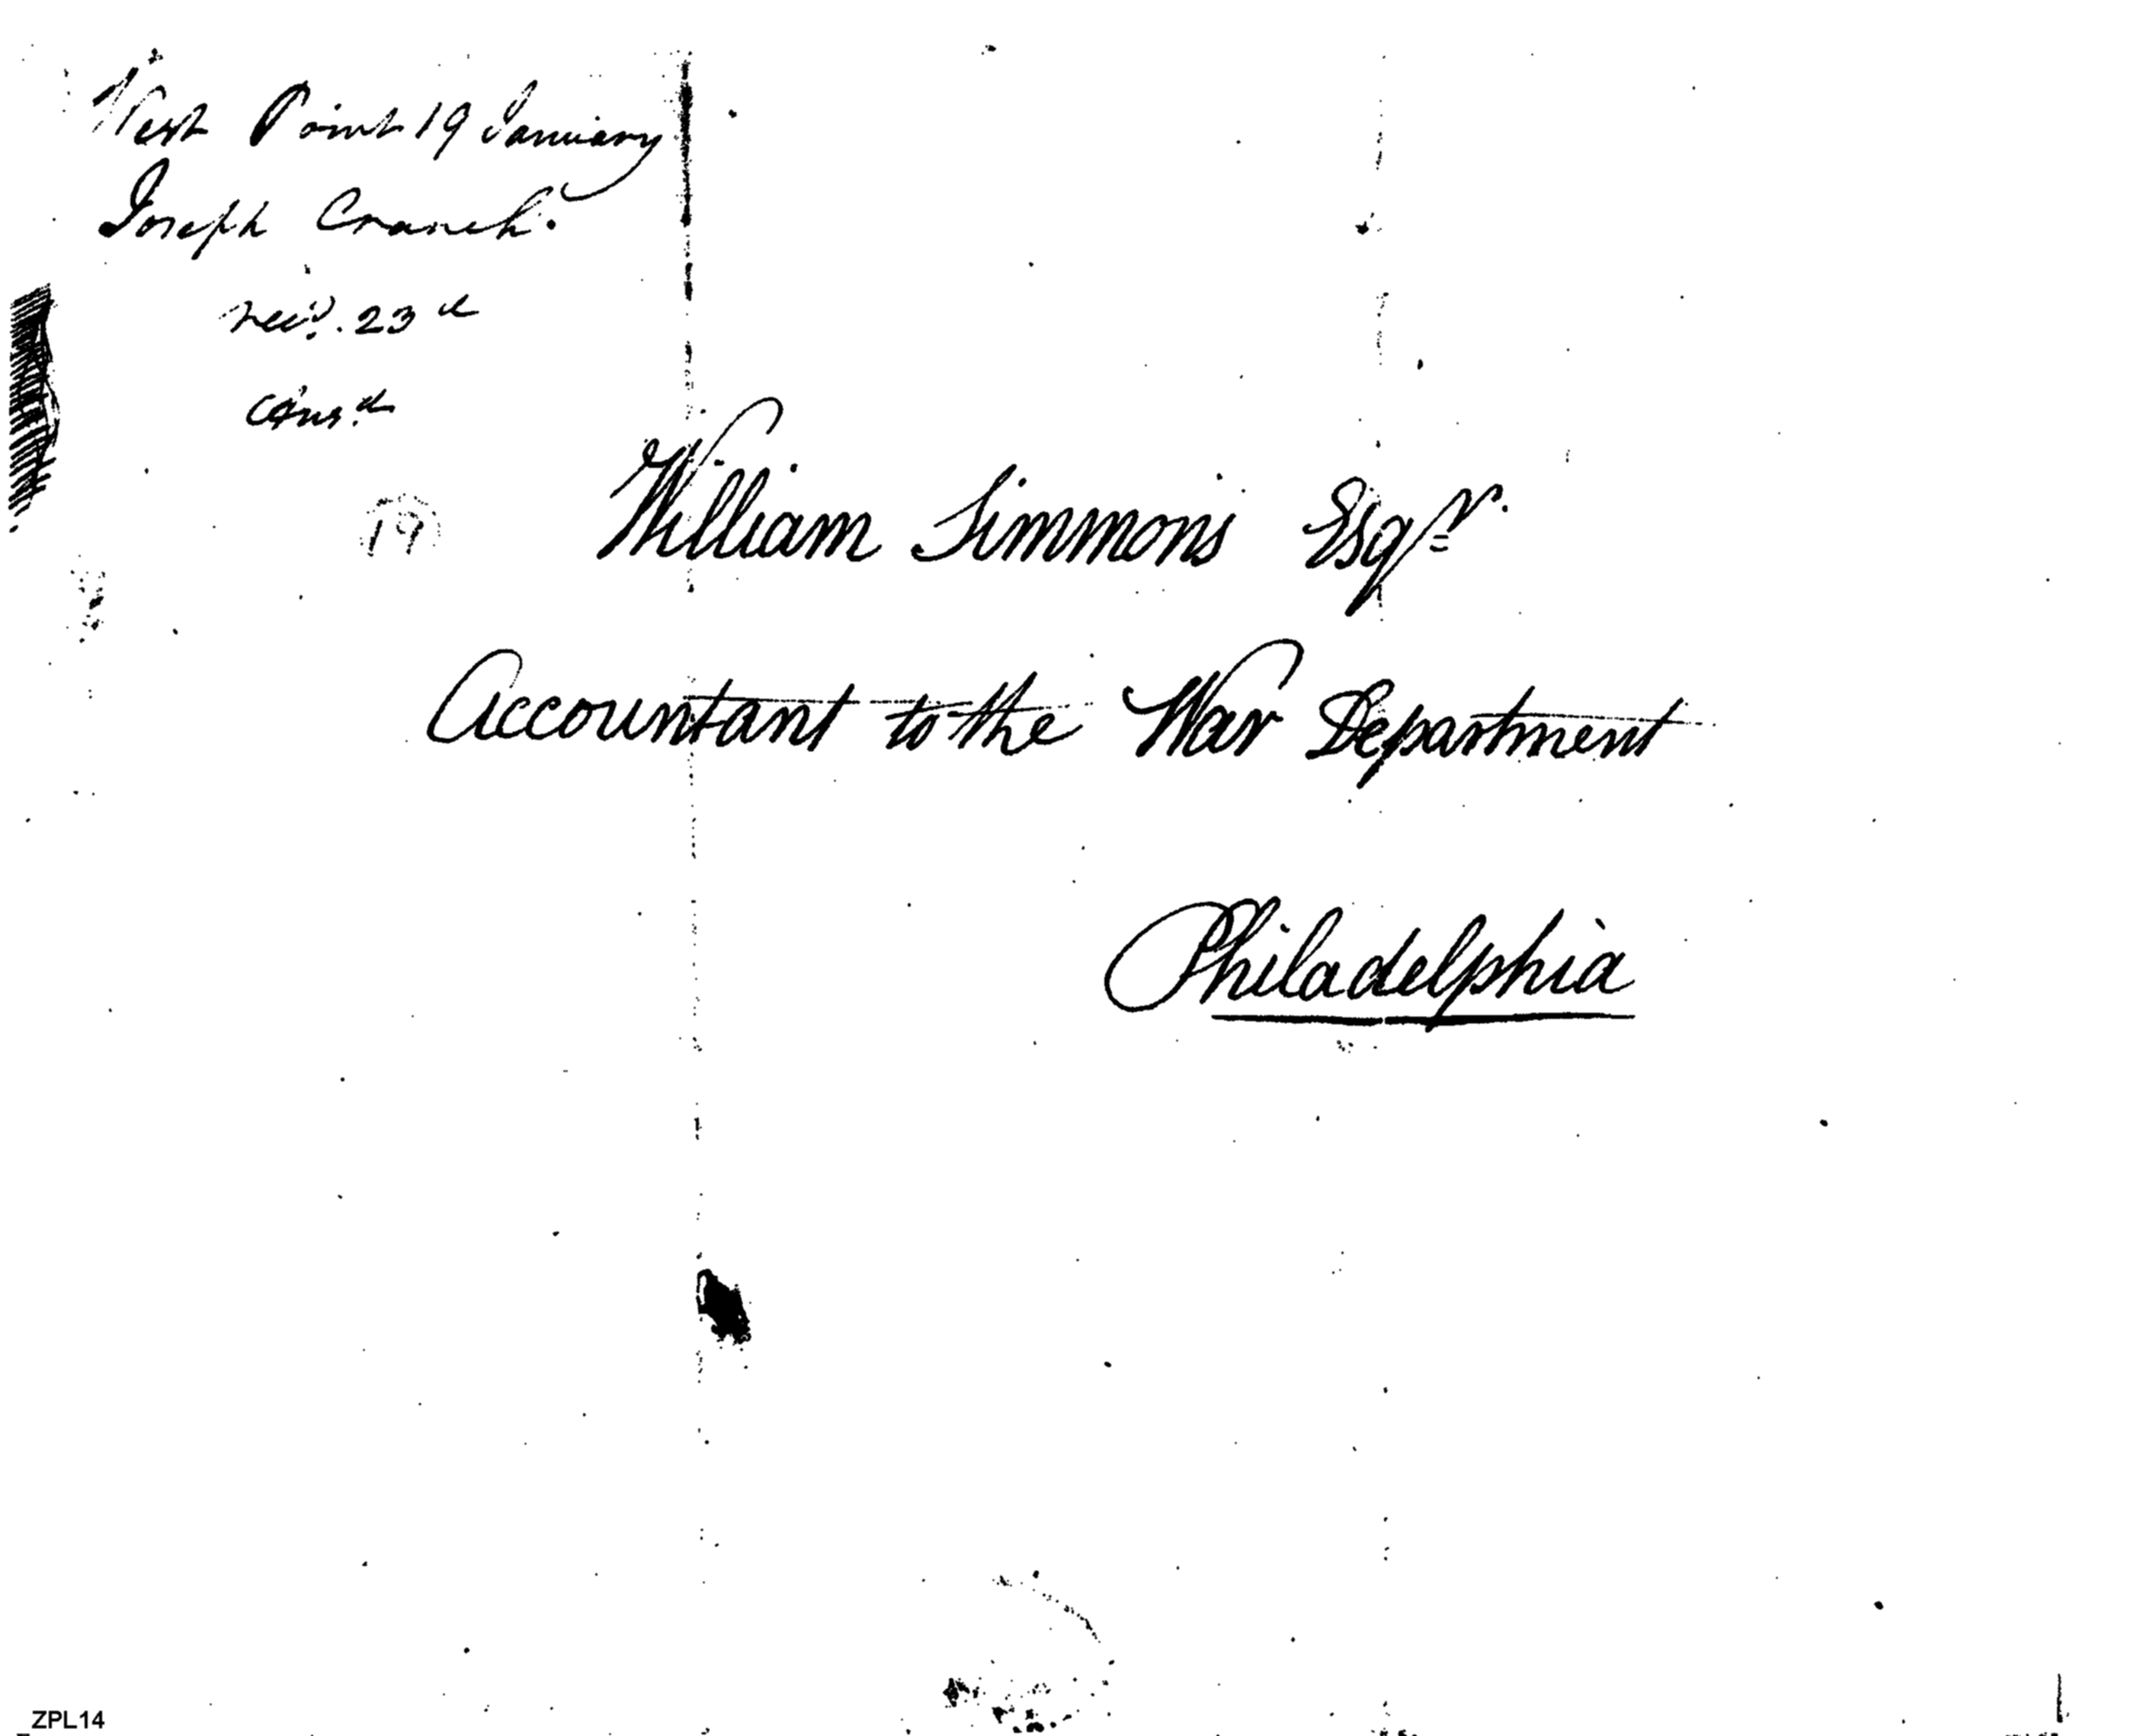 West Point 19 January
Joseph Cranch.
rec'd. 23d
ans.d
19
William Simmons Esqr.
Accountant to the War Department
Philadelphia
ZPL14